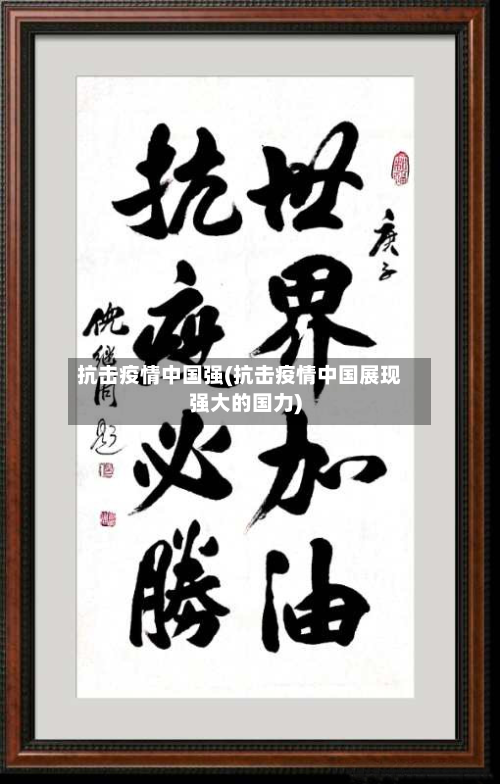 庚子
世界加油
抗疫必勝
抗击疫情中国强(抗击疫情中国展现
强大的国力)